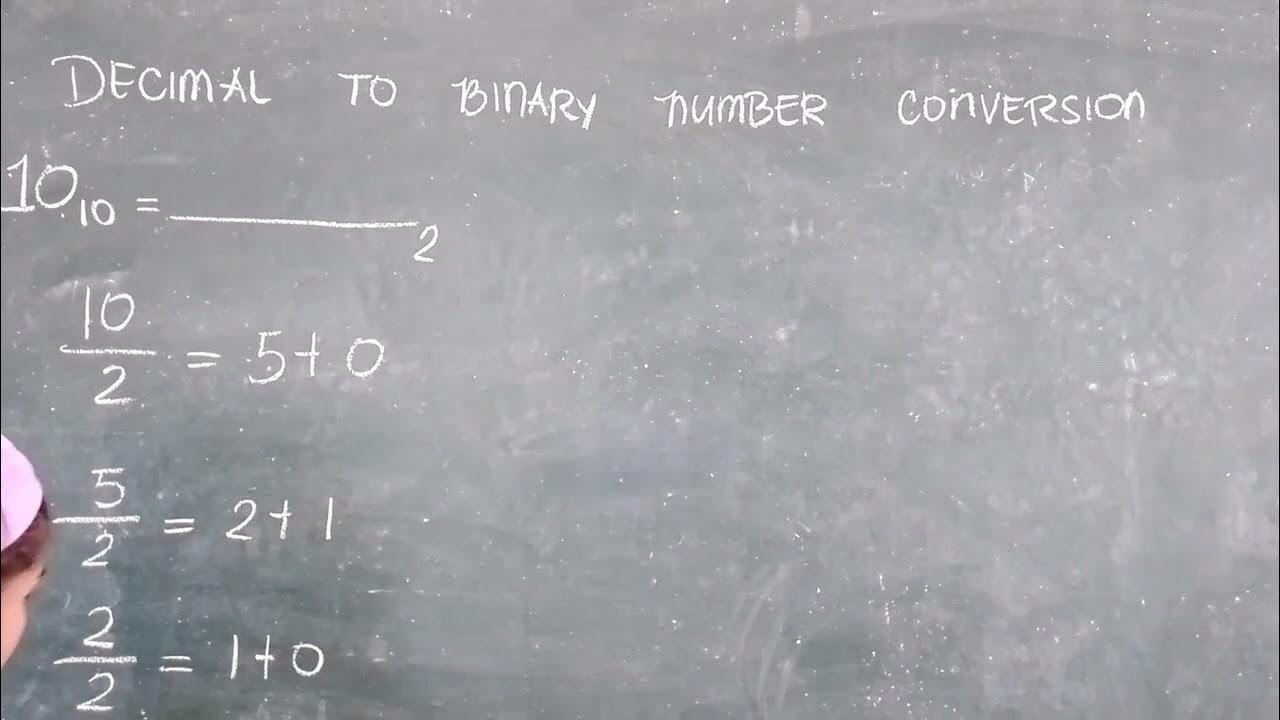 DECIMAL TO BINARY NUMBER CONVERSION
10₁₀ = __________₂
10/2 = 5+0
5/2 = 2+1
2/2 = 1+0